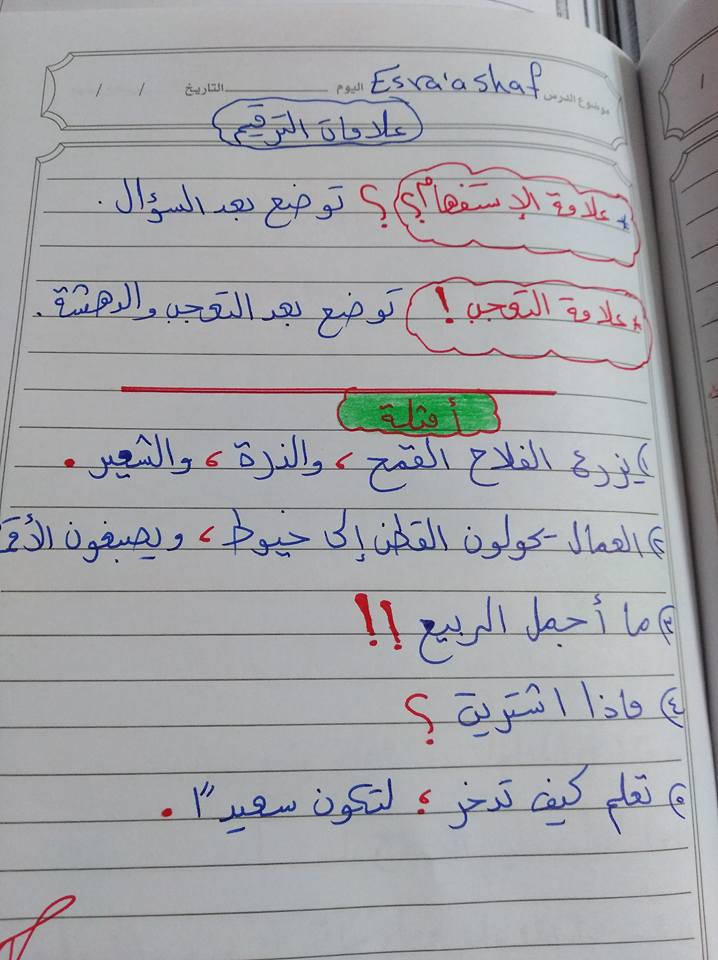 موضوع الدرس Esra'a shaf اليوم التاريخ / /
علامات الترقيم
* علامة الإستفهام؟ ؟ توضع بعد السؤال .
* علامة التعجب ! توضع بعد التعجب والدهشة .
أمثلة
١) يزرع الفلاح القمح ، والذرة ، والشعير .
٢) العمال يحولون القطن إلى خيوط ، ويصبغون
٣) ما أجمل الربيع !!
٤) ماذا اشتريت ؟
٥) تعلم كيف تدخر ؛ لتكون سعيدًا .